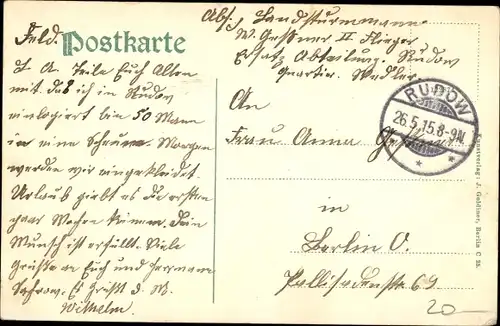 Feld. Postkarte
Abs. Landsturmmann
W. Geßner II Flieger
Ersatz Abteilung. Rudow
Quartier. Wedler.
L. A. Teile Euch Allen
mit. daß ich in Rudow
einlogiert bin 50 Mann
in eine Scheune. Morgen
werden wir eingekleidet.
Urlaub giebt es die ersten
paar Wochen keinen. Dein
Wunsch ist erfüllt. Viele
Grüße an Euch und Herrmann
Es Grüßt d. M.
Wilhelm.
RUDOW
26.5.15.8-9N.
An
Frau Anna Geßner
in
Berlin O.
Pallisadenstr 69
Kunstverlag: J. Goldiner, Berlin C 25.
20-